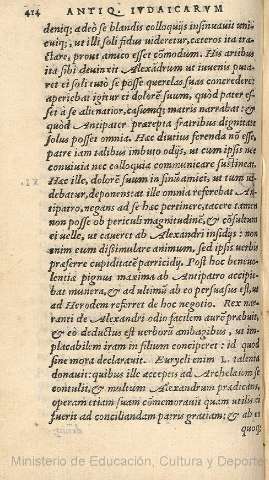 414 ANTIQ. IVDAICARVM
deniq; adeò se blandis colloquijs insinuauit uni-
cuiq;, ut illi soli fidus uideretur, cæteros ita tra-
ctare, prout amico esset cōmodum. His artibus
ita sibi deuinxit Alexādrum ut iuuenis puta-
ret ei soli tutò se posse querelas suas concredere:
aperiebat igitur ei dolorē suum, quòd pater es-
set à se alienatior, casumq; matris narrabat: &
quòd Antipater præterita fratribus dignitate
solus posset omnia. Hæc diutius ferenda nō esse,
patre iam talibus imbuto odijs, ut cum ipsis nec
conuiuia nec colloquia communicare sustineat.
XI. Hæc ille, dolorē suum in sinū amici, ut tum ui-
debatur, deponens: at ille omnia referebat An-
tipatro, negans ad se hæc pertinere, tacere tamen
non posse ob periculi magnitudinē, & cōsultum
ei uelle, ut caueret ab Alexandri insidijs: non
enim eum dissimulare animum, sed ipsis uerbis
præferre cupiditatē parricidij. Post hoc beneuo-
lentiæ pignus maxima ab Antipatro accipie-
bat munera, & ad ultimū ab eo persuasus est, ut
ad Herodem referret de hoc negotio. Rex nar-
ranti de Alexandri odio facilem aurē præbuit,
& eò deductus est uerborū ambagibus, ut im-
placabilem iram in filium conciperet: id quod
sine mora declarauit. Eurycli enim L. talenta
donauit: quibus ille acceptis ad Archelaum se
contulit, & multum Alexandrum prædicans,
operam etiam suam cōmemorauit quàm utilis ei
fuerit ad conciliandam patris gratiam: & ab eo
quoq;
Ministerio de Educación, Cultura y Deporte